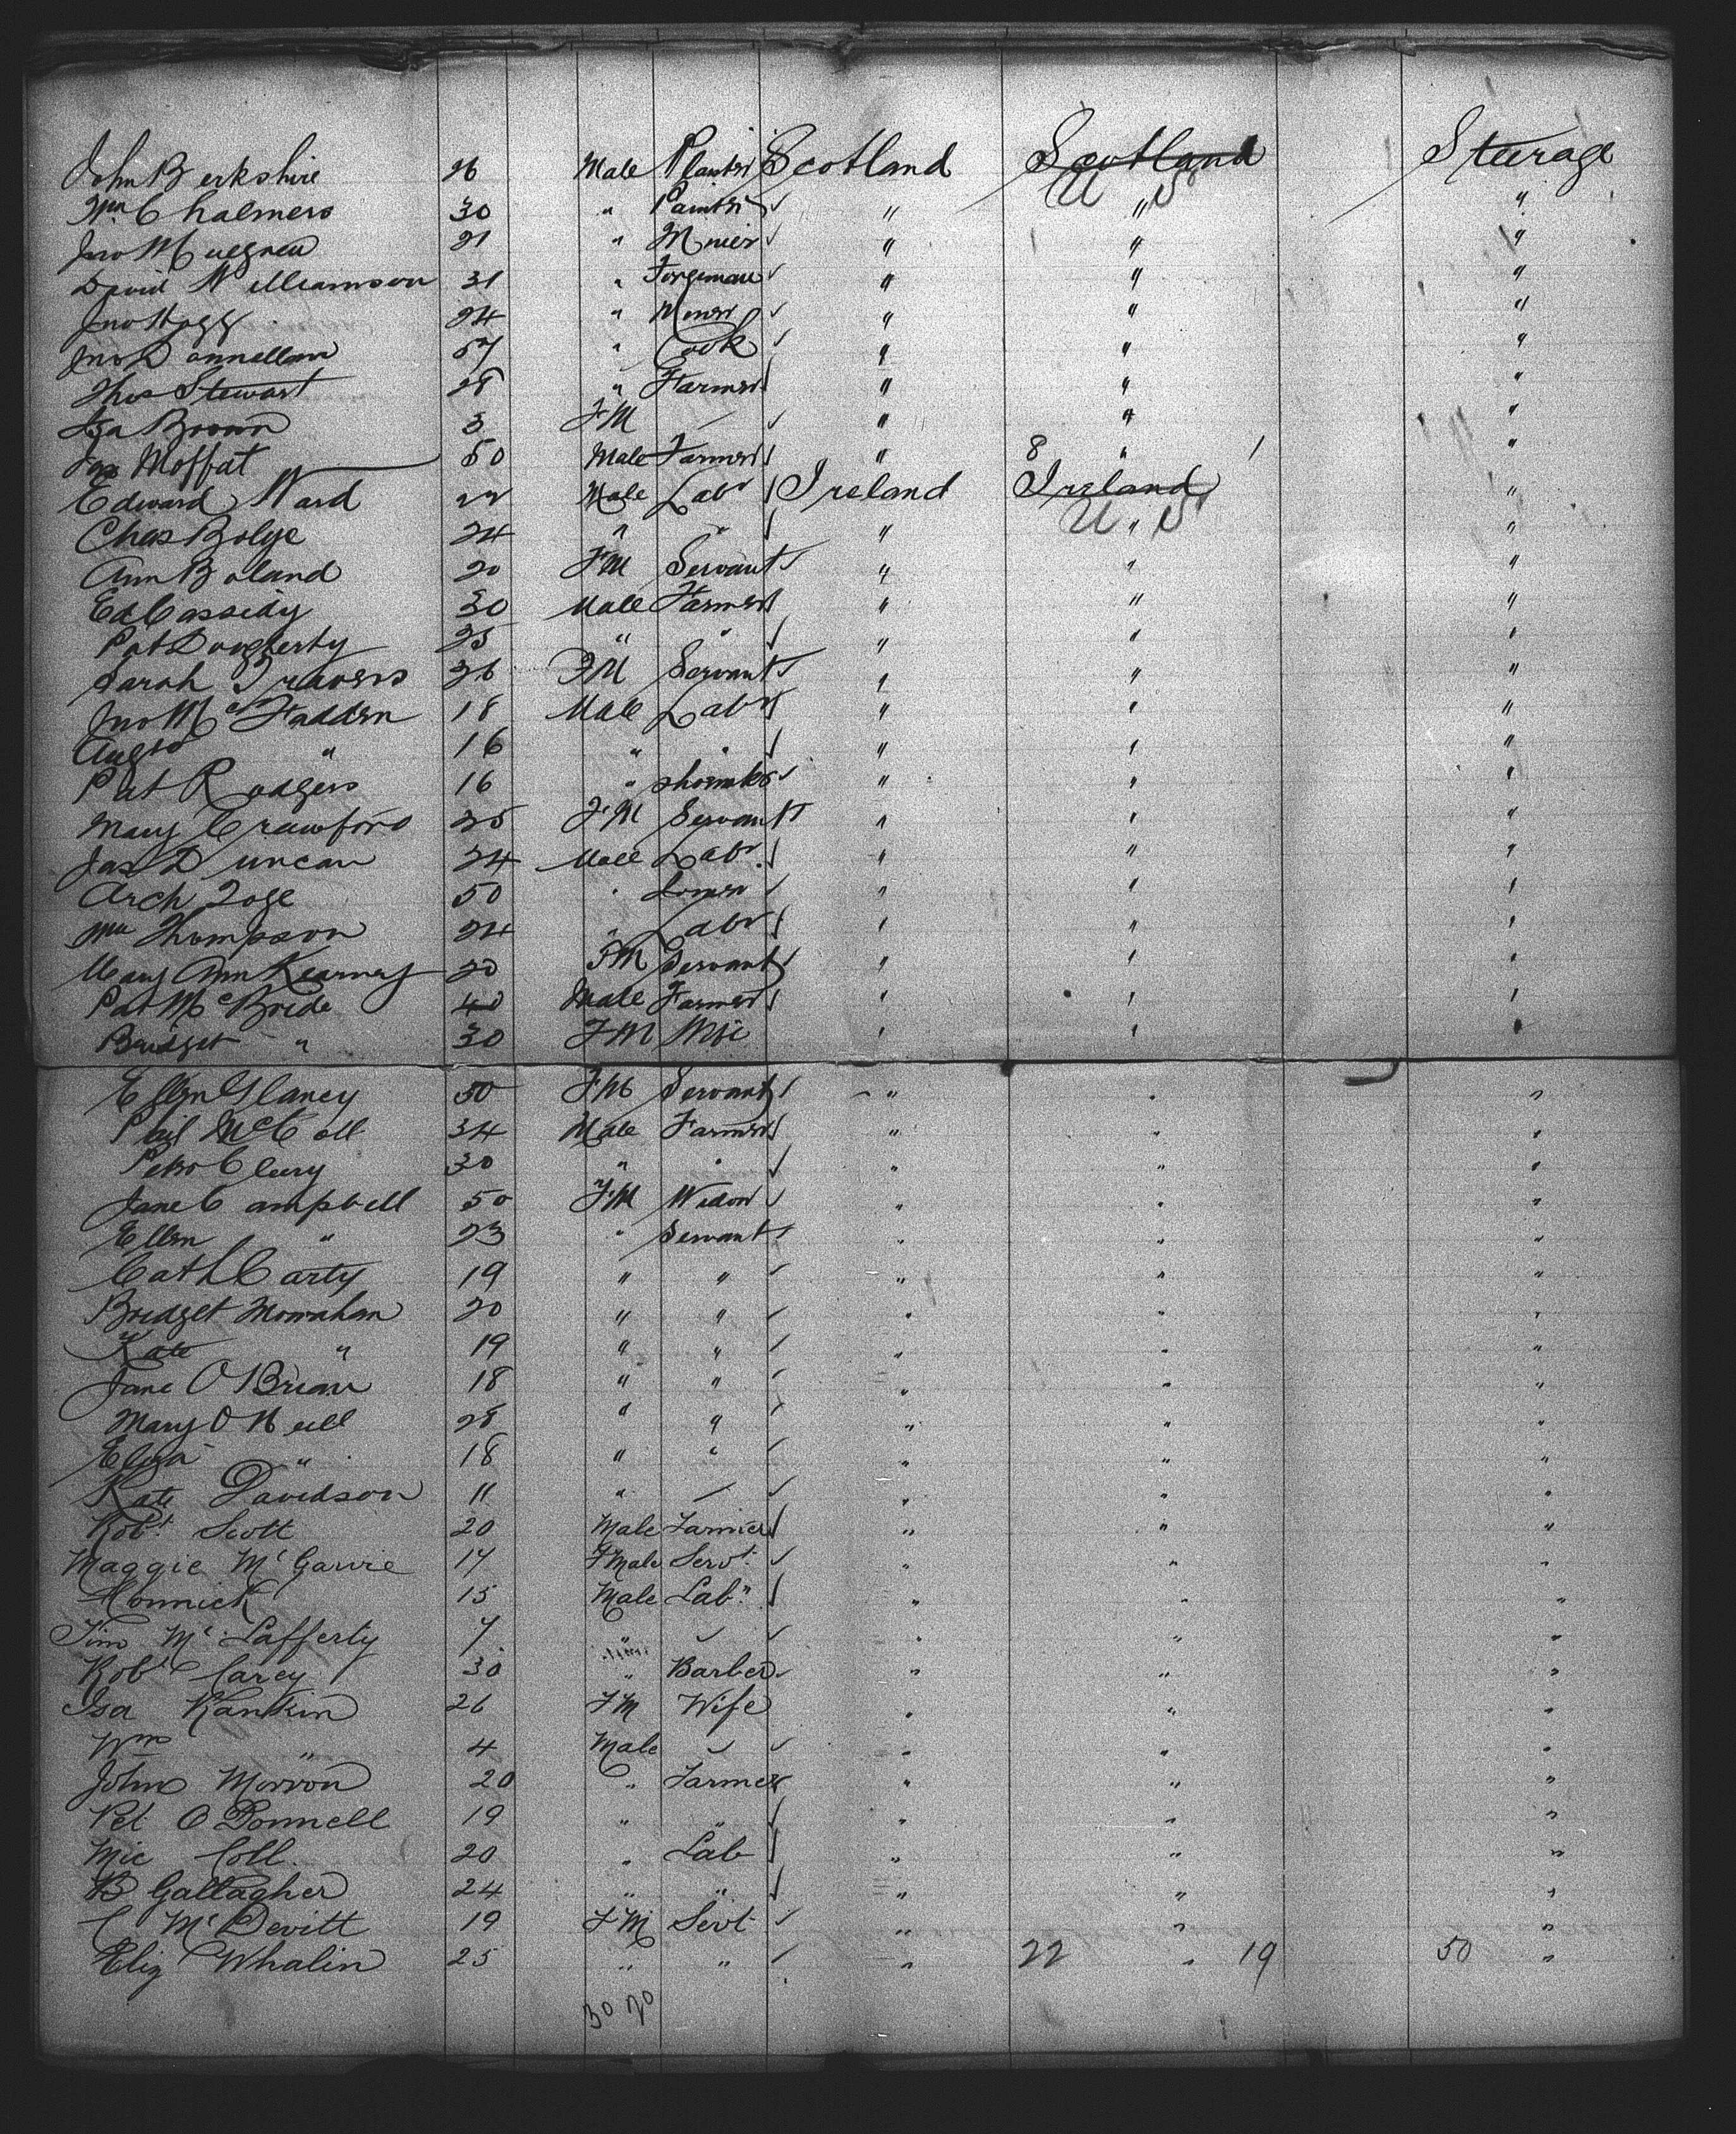 John Berkshire 26 Male Scotland Scotland Steerage
U S
Wm Chalmers 30 " Painter " " "
Jno 21 " Miner " " "
David Williamson 31 " Forgeman " " "
Jno Hogg 24 " Miner " " "
Jno Donnellan 57 " Cook " " "
Thos Stewart 28 " Farmer " " "
Isa Brown 3 FM — " " "
Jas Moffat 50 Male Farmer " 8 " 1 "
Edward Ward 22 Male Labr Ireland Ireland "
U S
Chas Bolge 24 " " " " "
Ann Boland 20 FM Servant " " "
Ed Cassidy 30 Male Farmer " " "
Pat Dougherty 25 " " " " "
Sarah Travers 26 FM Servant " " "
Jno McFadden 18 Male Labr " " "
" 16 " " " " "
Pat Rodgers 16 " shoemkr " " "
Mary Crawford 25 FM Servant " " "
Jas Duncan 24 Male Labr. " " "
Arch 50 " " " "
Wm Thompson 24 " Labr " " "
Mary Ann Kearney 20 FM Servant " " "
Pat McBride 40 Male Farmer " " "
Bridget " 30 FM Wife " " "
Ellen Glancy 50 FM Servant " " "
Phil McColl 34 Male Farmer " " "
Peter Clery 30 " " " " "
Jane Campbell 50 FM Widow " " "
Ellen " 23 " Servant " " "
Cath Carty 19 " " " " "
Bridget Monahan 20 " " " " "
Kate " 19 " " " " "
Jane O Brian 18 " " " " "
Mary O Neill 28 " " " " "
Eliza " 18 " " " " "
Kate Davidson 11 " — " " "
Robt. Scott 20 Male Farmer " " "
Maggie McGarvie 17 Fmale Servt. " " "
15 Male Labr. " " "
Jim McLafferty 7 " " "
Robt Carey 30 " Barber " " "
Isa Rankin 26 FM Wife " " "
Wm " 4 Male " " "
John Morron 20 " Farmer " " "
Pet O Donnell 19 " " " " "
Mic Coll 20 " Lab " " "
B Gallagher 24 " " " " "
C McDevitt 19 FM Servt " " "
Eliz Whalin 25 " " " 22 " 19 50 "
30 20